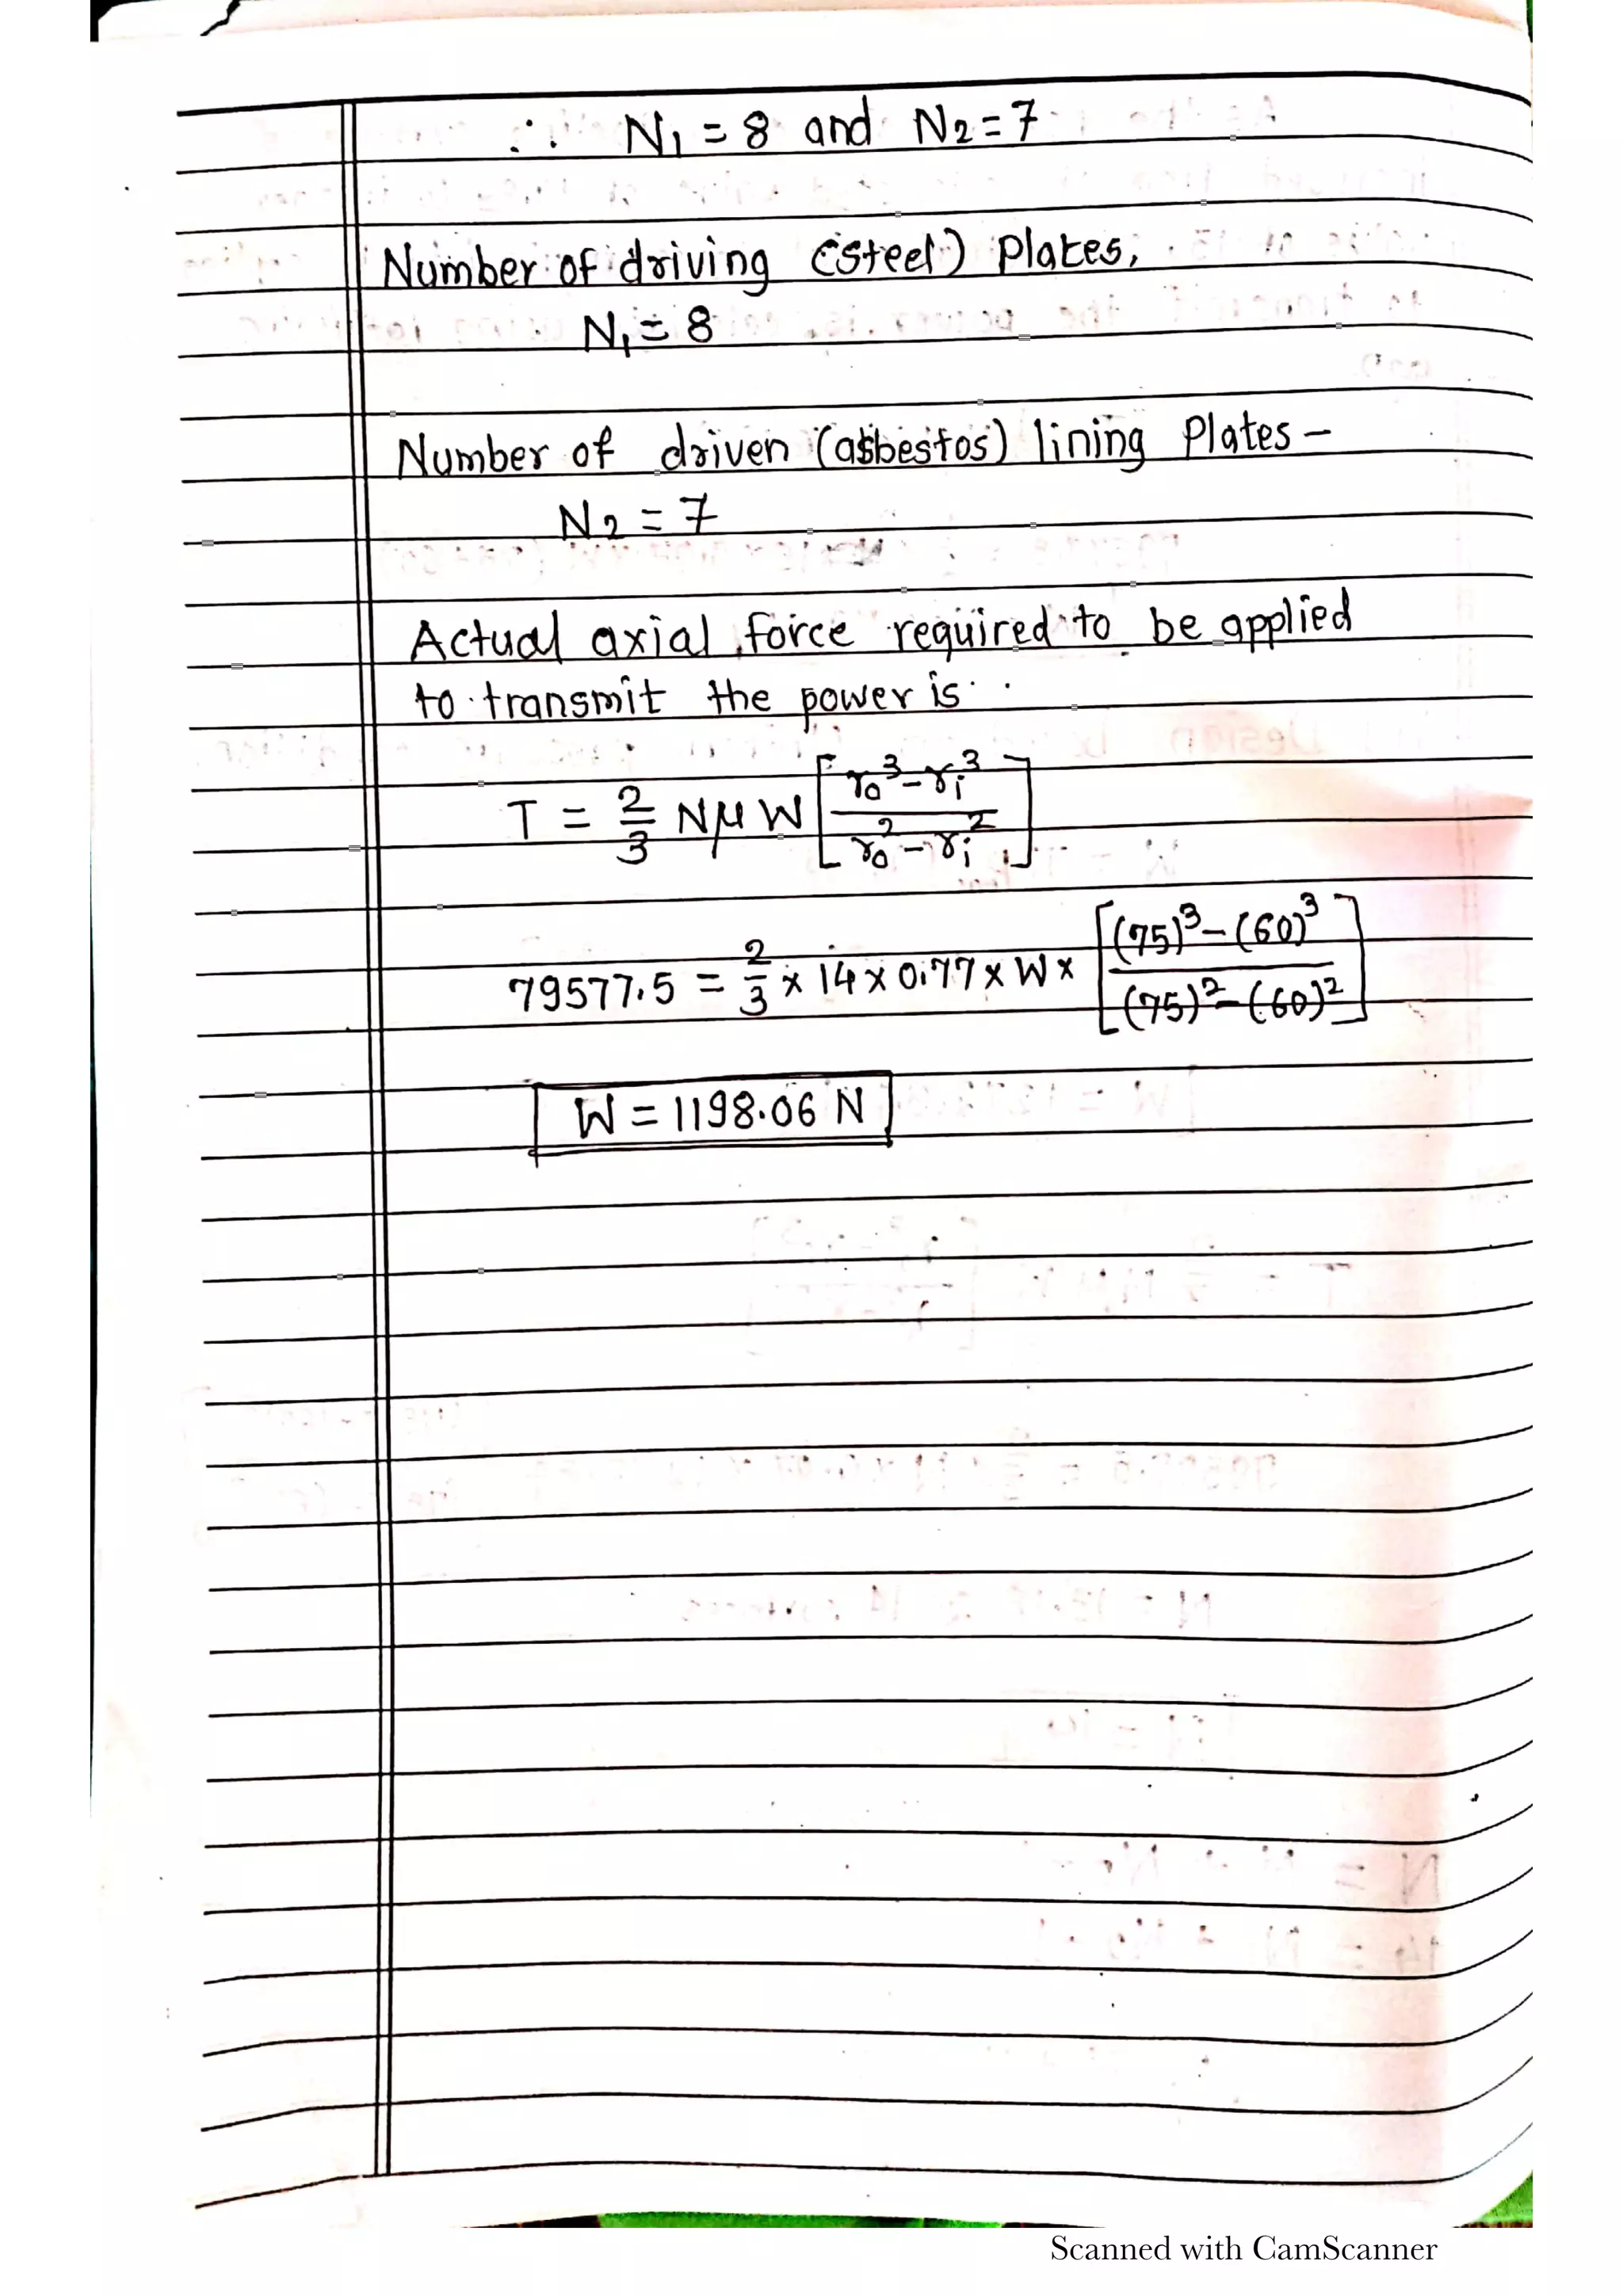 ∴ N₁ = 8 and N₂ = 7
Number of driving (Steel) Plates,
N₁ = 8
Number of driven (asbestos) lining Plates –
N₂ = 7
Actual axial force required to be applied
to transmit the power is
T = 2/3 NμW [ (r₀³ – rᵢ³) / (r₀² – rᵢ²) ]
79577.5 = 2/3 x 14 x 0.77 x W x [ ((75)³ – (60)³) / ((75)² – (60)²) ]
W = 1198.06 N
Scanned with CamScanner